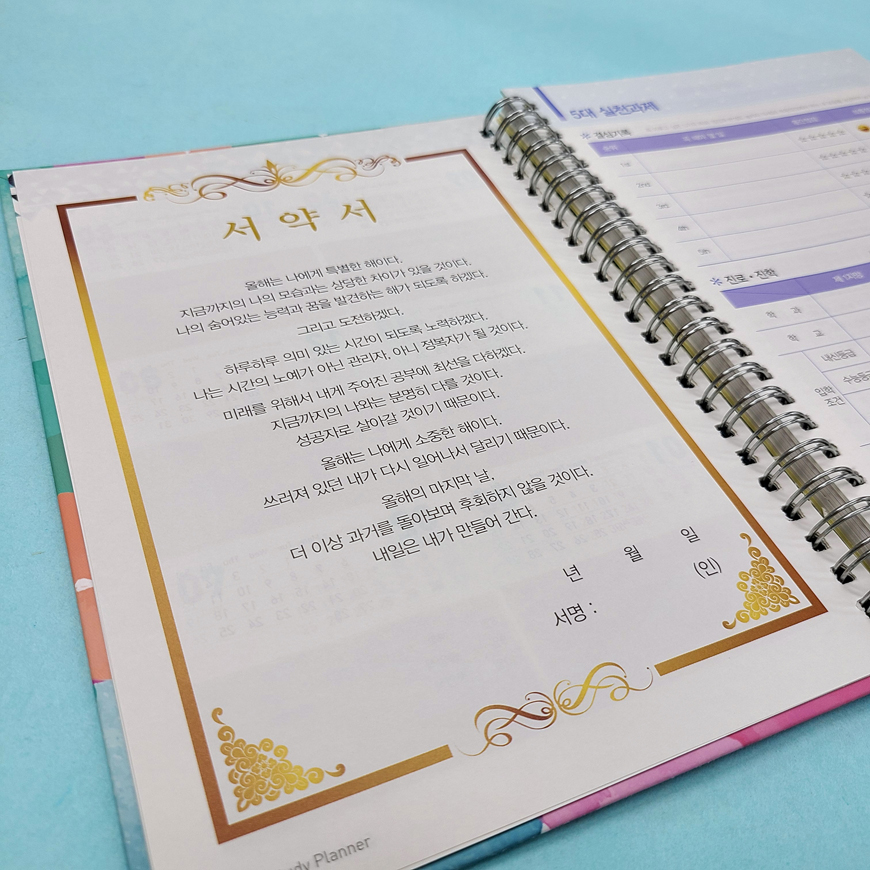 서약서
올해는 나에게 특별한 해이다.
지금까지의 나의 모습과는 상당한 차이가 있을 것이다.
나의 숨어있는 능력과 꿈을 발견하는 해가 되도록 하겠다.
그리고 도전하겠다.
하루하루 의미 있는 시간이 되도록 노력하겠다.
나는 시간의 노예가 아닌 관리자, 아니 정복자가 될 것이다.
미래를 위해서 내게 주어진 공부에 최선을 다하겠다.
지금까지의 나와는 분명히 다를 것이다.
성공자로 살아갈 것이기 때문이다.
올해는 나에게 소중한 해이다.
쓰러져 있던 내가 다시 일어나서 달리기 때문이다.
올해의 마지막 날,
더 이상 과거를 돌아보며 후회하지 않을 것이다.
내일은 내가 만들어 간다.
년 월 일
서명 : (인)
Planner
5대 실천과제
※ 진로·진학
학 과
학 교
내신등급
입학
조건